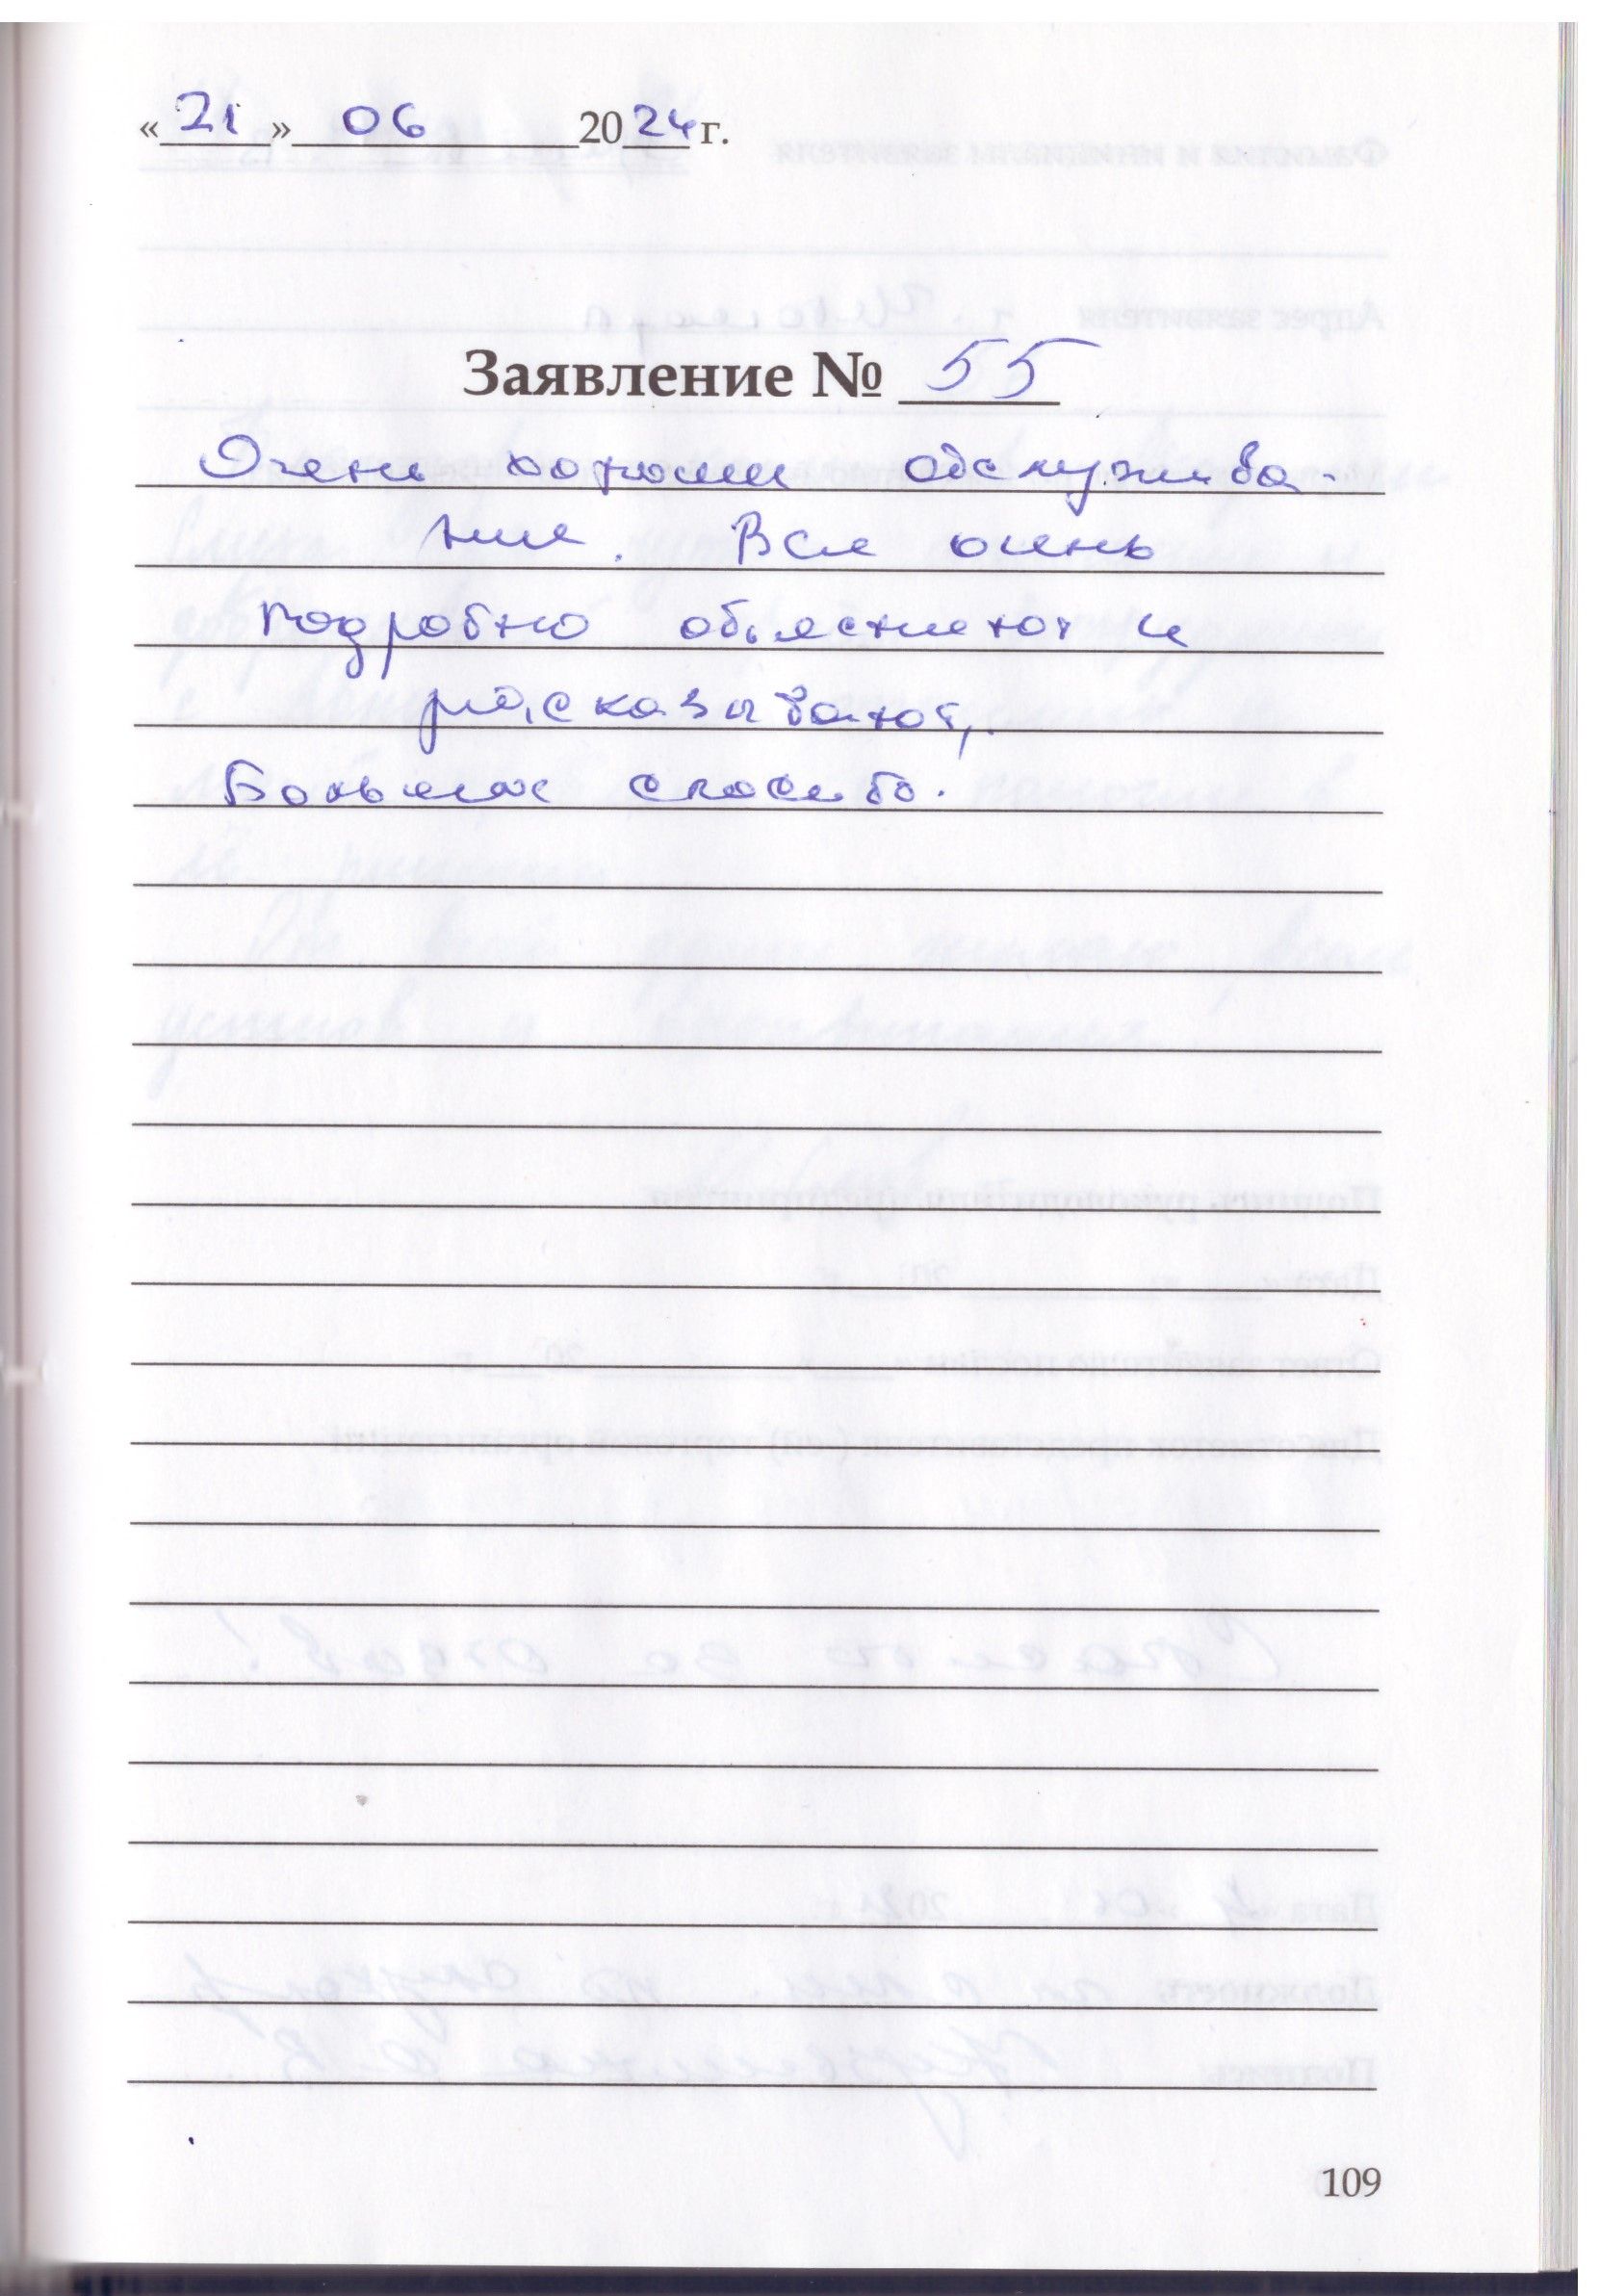 «21» 06 2024 г.
Заявление № 55
Очень хорошее обслужива-
ние. Все очень
подробно объясняют и
расказывают.
Большое спасибо.
109